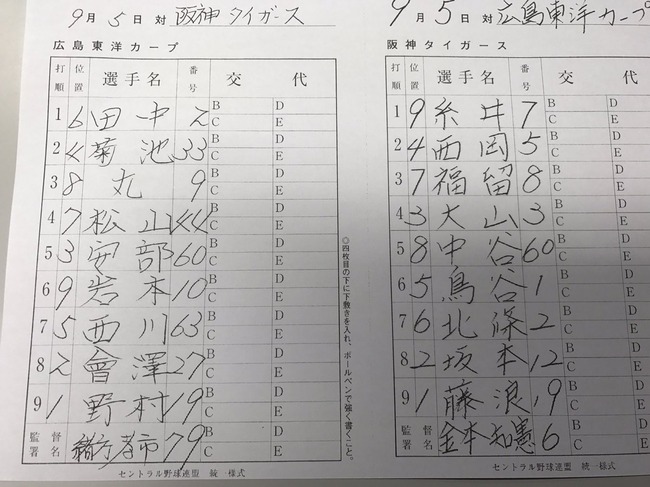 9月5日 対 阪神タイガース
広島東洋カープ
打順 位置 選手名 番号 交代
1 6 田中 2 B D C E
2 4 菊池 33 B D C E
3 8 丸 9 B D C E
4 7 松山 44 B D C E
5 3 安部 60 B D C E
6 9 岩本 10 B D C E
7 5 西川 63 B D C E
8 2 會澤 27 B D C E
9 1 野村 19 B D C E
監督署名 緒方孝市 79 B D C E
セントラル野球連盟 統一様式
◎四枚目の下に下敷きを入れ、ボールペンで強く書くこと。
9月5日 対 広島東洋カープ
阪神タイガース
打順 位置 選手名 番号 交代
1 9 糸井 7 B D C E
2 4 西岡 5 B D C E
3 7 福留 8 B D C E
4 3 大山 3 B D C E
5 8 中谷 60 B D C E
6 5 鳥谷 1 B D C E
7 6 北條 2 B D C E
8 2 坂本 12 B D C E
9 1 藤浪 19 B D C E
監督署名 金本知憲 6 B D C E
セントラル野球連盟 統一様式